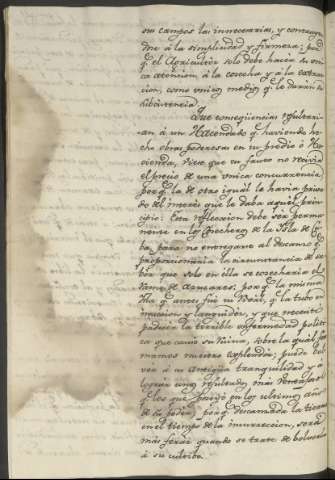 sus campos las innecesarias, y contrayen
dose á la simplicidad y firmeza; pues
q.e el Agricultor solo debe hacer su uni
ca atencion á la cosecha y á la extrac
cion, como unicos medios q.e le darán su
subsistencia.
Que conseqüencias resultari
an á un Hacendado q.e haviendo he
cho obras poderosas en su predio ó Ha
cienda, viese que su fruto no recivia
el precio de una unica concurrencia
porq.e la de otro igual le havia priva
do del interés que le daba aquel prin
cipio: Esta reflexcion debe ser perma
nente en los Cosecheros de la Isla de Cu
ba, para no entregarse al descanso q.e
proporcionaria la circunstancia de sa
ber que solo en ella se cosecharia el
ramo de Azucares; porq.e la misma
Isla q.e antes fué su Rival, q.e la tubo en
inaccion y languidez, y que necesitó
padecer la terrible enfermedad politi
ca que causó su ruina, sobre la qual for
mamos nuestro explendor; puede bol
ver á su antigua tranquilidad y á
lograr unos resultados mas ventajosos
q.e los que poseyó en los ultimos años
de su poder, porq.e descansada la tierra
en el tiempo de la insurreccion, será
más feráz quando se trate de bolverla
á su cultibo.